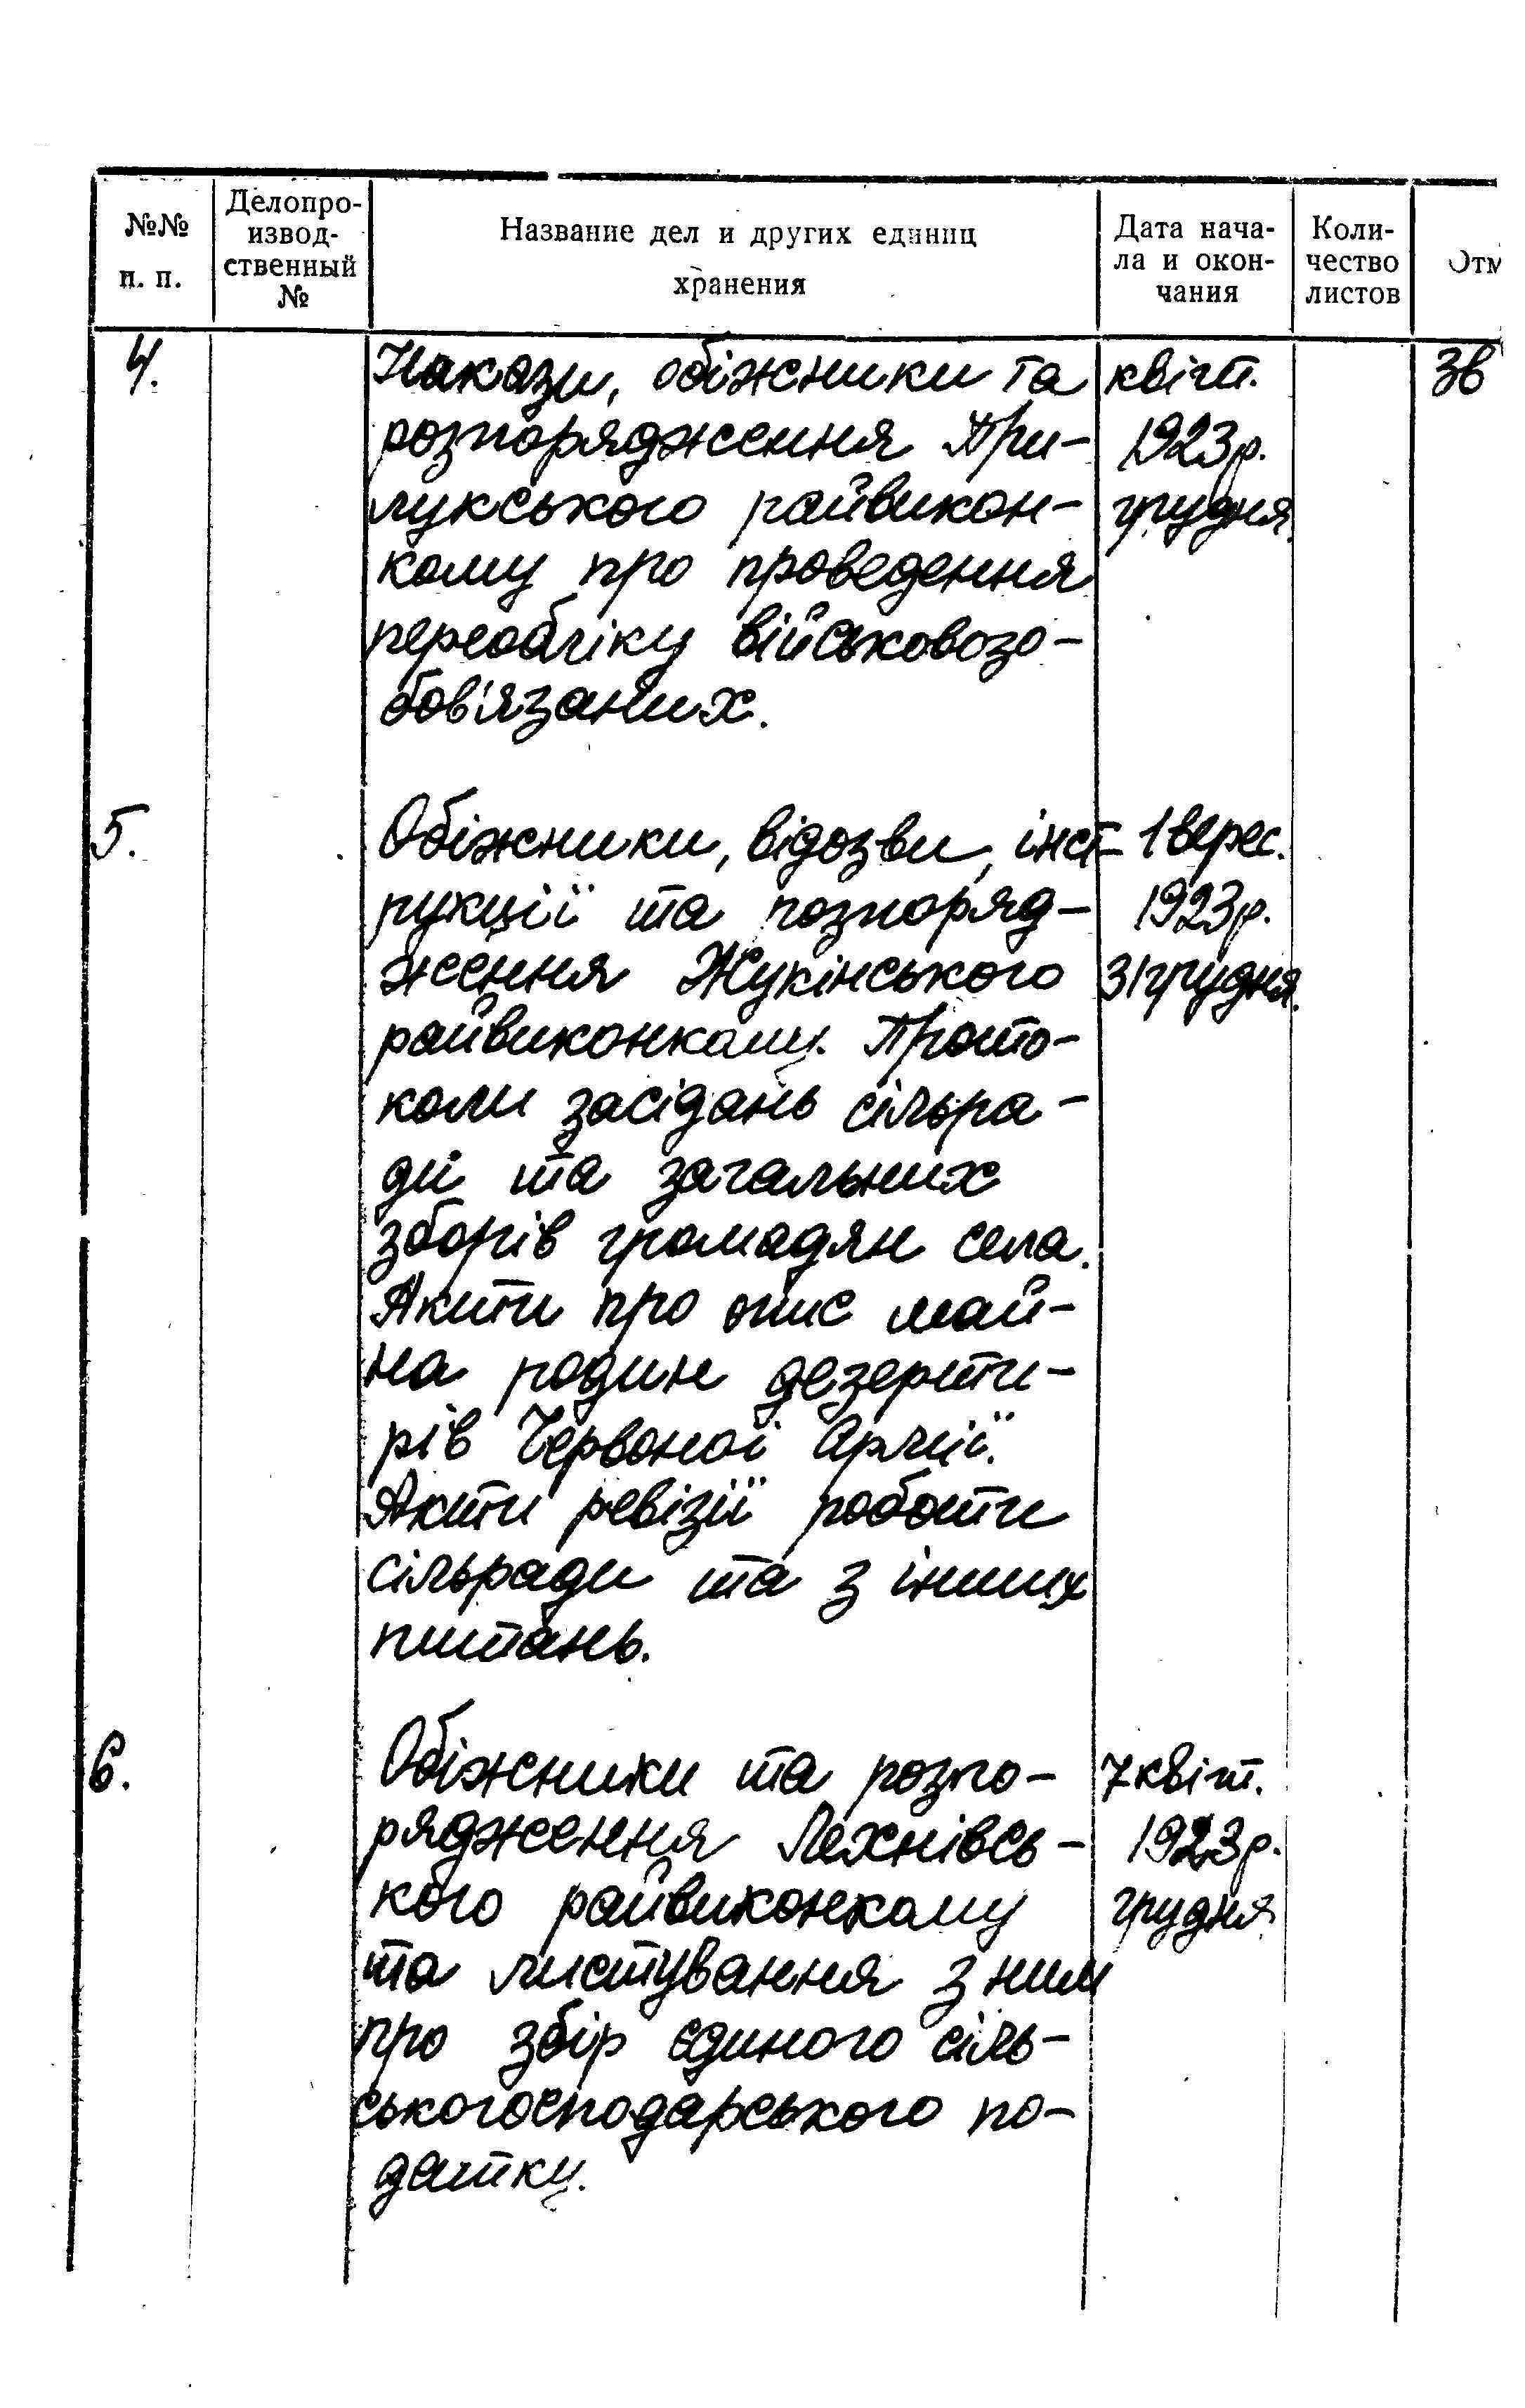 №№ п. п.
Делопро-
извод-
ственный
№
Название дел и других единиц
хранения
Дата нача-
ла и окон-
чания
Коли-
чество
листов
Отм
4.
Накази, обіжники та квіт. 38
розпорядження При- 1923р.
лукського райвикон- грудня.
кому про проведення
переобліку військовозо-
бов'язаних.
5.
Обіжники, відозви, інст- 1 верес.
рукції та розпоряд- 1923р.
ження Жукінського 31 грудня.
райвиконкому. Прото-
коли засідань сільра-
ди та загальних
зборів громадян села.
Акти про опис май-
на родин дезерти-
рів Червоної Армії.
Акти ревізії роботи
сільради та з інших
питань.
6.
Обіжники та розпо- 7 квіт.
рядження Лехнівсь- 1923р.
кого райвиконкому грудня
та листування з ним
про збір єдиного сіль-
ськогосподарського по-
датку.